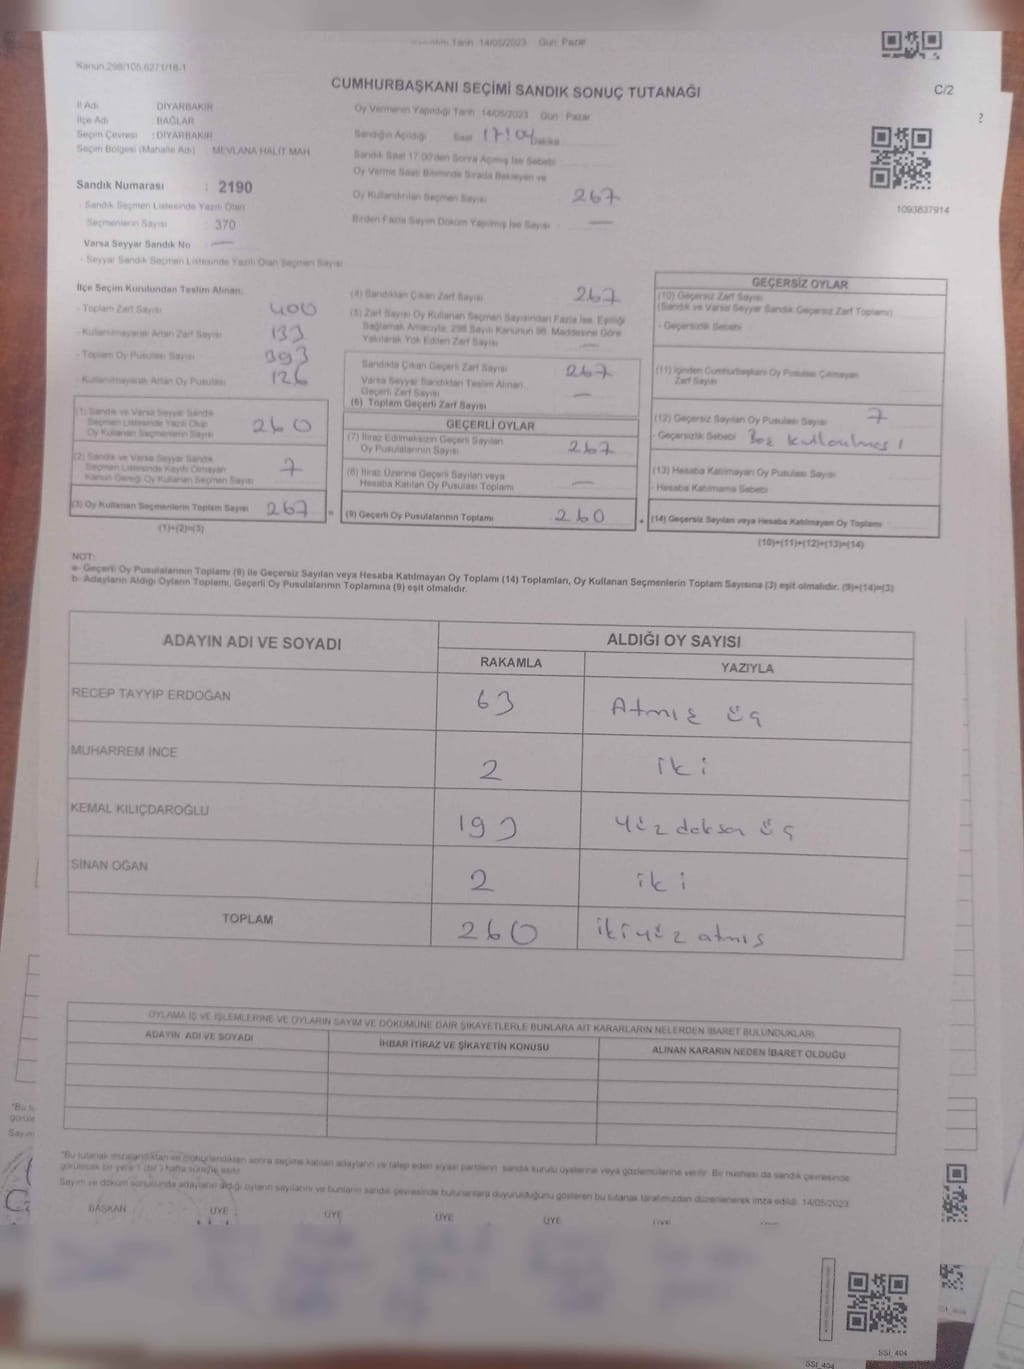 Tarih 14/05/2023 Gün: Pazar
Kanun.298/105,6271/18-1
CUMHURBAŞKANI SEÇİMİ SANDIK SONUÇ TUTANAĞI
C/2
İl Adı DİYARBAKIR
İlçe Adı BAĞLAR
Seçim Çevresi : DİYARBAKIR
Seçim Bölgesi (Mahalle Adı) MEVLANA HALİT MAH.
Sandık Numarası : 2190
- Sandık Seçmen Listesinde Yazılı Olan
Seçmenlerin Sayısı : 370
Varsa Seyyar Sandık No —
- Seyyar Sandık Seçmen Listesinde Yazılı Olan Seçmen Sayısı
Oy Vermenin Yapıldığı Tarih 14/05/2023 Gün : Pazar
Sandığın Açıldığı Saat 17:04 Dakika
Sandık Saat 17:00'den Sonra Açılmış İse Sebebi
Oy Verme Saati Bitiminde Sırada Bekleyen ve
Oy Kullandırılan Seçmen Sayısı 267
Birden Fazla Sayım Döküm Yapılmış İse Sayısı —
1093637914
İlçe Seçim Kurulundan Teslim Alınan;
- Toplam Zarf Sayısı 400
- Kullanılmayarak Artan Zarf Sayısı 133
- Toplam Oy Pusulası Sayısı 393
- Kullanılmayarak Artan Oy Pusulası 126
(1) Sandık ve Varsa Seyyar Sandık
Seçmen Listesinde Yazılı Olup
Oy Kullanan Seçmenlerin Sayısı 260
(2) Sandık ve Varsa Seyyar Sandık
Seçmen Listesinde Kayıtlı Olmayan
Kanun Gereği Oy Kullanan Seçmen Sayısı 7
(3) Oy Kullanan Seçmenlerin Toplam Sayısı 267
(1)+(2)=(3)
(4) Sandıktan Çıkan Zarf Sayısı 267
(5) Zarf Sayısı Oy Kullanan Seçmen Sayısından Fazla İse, Eşitliği
Sağlamak Amacıyla; 298 Sayılı Kanunun 98. Maddesine Göre
Yakılarak Yok Edilen Zarf Sayısı —
Sandıkta Çıkan Geçerli Zarf Sayısı 267
Varsa Seyyar Sandıktan Teslim Alınan
Geçerli Zarf Sayısı —
(6) Toplam Geçerli Zarf Sayısı
GEÇERLİ OYLAR
(7) İtiraz Edilmeksizin Geçerli Sayılan
Oy Pusulalarının Sayısı 267
(8) İtiraz Üzerine Geçerli Sayılan veya
Hesaba Katılan Oy Pusulası Toplamı —
= (9) Geçerli Oy Pusulalarının Toplamı 260
GEÇERSİZ OYLAR
(10) Geçersiz Zarf Sayısı
(Sandık ve Varsa Seyyar Sandık Geçersiz Zarf Toplamı)
- Geçersizlik Sebebi
(11) İçinden Cumhurbaşkanı Oy Pusulası Çıkmayan
Zarf Sayısı
(12) Geçersiz Sayılan Oy Pusulası Sayısı 7
- Geçersizlik Sebebi Boş kullanılmış
(13) Hesaba Katılmayan Oy Pusulası Sayısı
- Hesaba Katılmama Sebebi
+ (14) Geçersiz Sayılan veya Hesaba Katılmayan Oy Toplamı
(10)+(11)+(12)+(13)=(14)
NOT:
a- Geçerli Oy Pusulalarının Toplamı (9) ile Geçersiz Sayılan veya Hesaba Katılmayan Oy Toplamı (14) Toplamları, Oy Kullanan Seçmenlerin Toplam Sayısına (3) eşit olmalıdır. (9)+(14)=(3)
b- Adayların Aldığı Oyların Toplamı, Geçerli Oy Pusulalarının Toplamına (9) eşit olmalıdır.
ADAYIN ADI VE SOYADI
ALDIĞI OY SAYISI
RAKAMLA YAZIYLA
RECEP TAYYİP ERDOĞAN 63 Atmış üç
MUHARREM İNCE 2 iki
KEMAL KILIÇDAROĞLU 193 Yüz doksan üç
SİNAN OĞAN 2 iki
TOPLAM 260 ikiyüz atmış
OYLAMA İŞ VE İŞLEMLERİNE VE OYLARIN SAYIM VE DÖKÜMÜNE DAİR ŞİKAYETLERLE BUNLARA AİT KARARLARIN NELERDEN İBARET BULUNDUKLARI
ADAYIN ADI VE SOYADI İHBAR İTİRAZ VE ŞİKAYETİN KONUSU ALINAN KARARIN NEDEN İBARET OLDUĞU
*Bu tutanak imzalandıktan ve mühürlendikten sonra seçime katılan adayların ve talep eden siyasi partilerin sandık kurulu üyelerine veya gözlemcilerine verilir. Bir nüshası da sandık çevresinde
görülecek bir yere 1 (bir) hafta süreyle asılır.
Sayım ve döküm sonucunda adayların aldığı oyların sayılarını ve bunların sandık çevresinde bulunanlara duyurulduğunu gösteren bu tutanak tarafımızdan düzenlenerek imza edildi. 14/05/2023
BAŞKAN ÜYE ÜYE ÜYE ÜYE
SSI_404
SSI_404